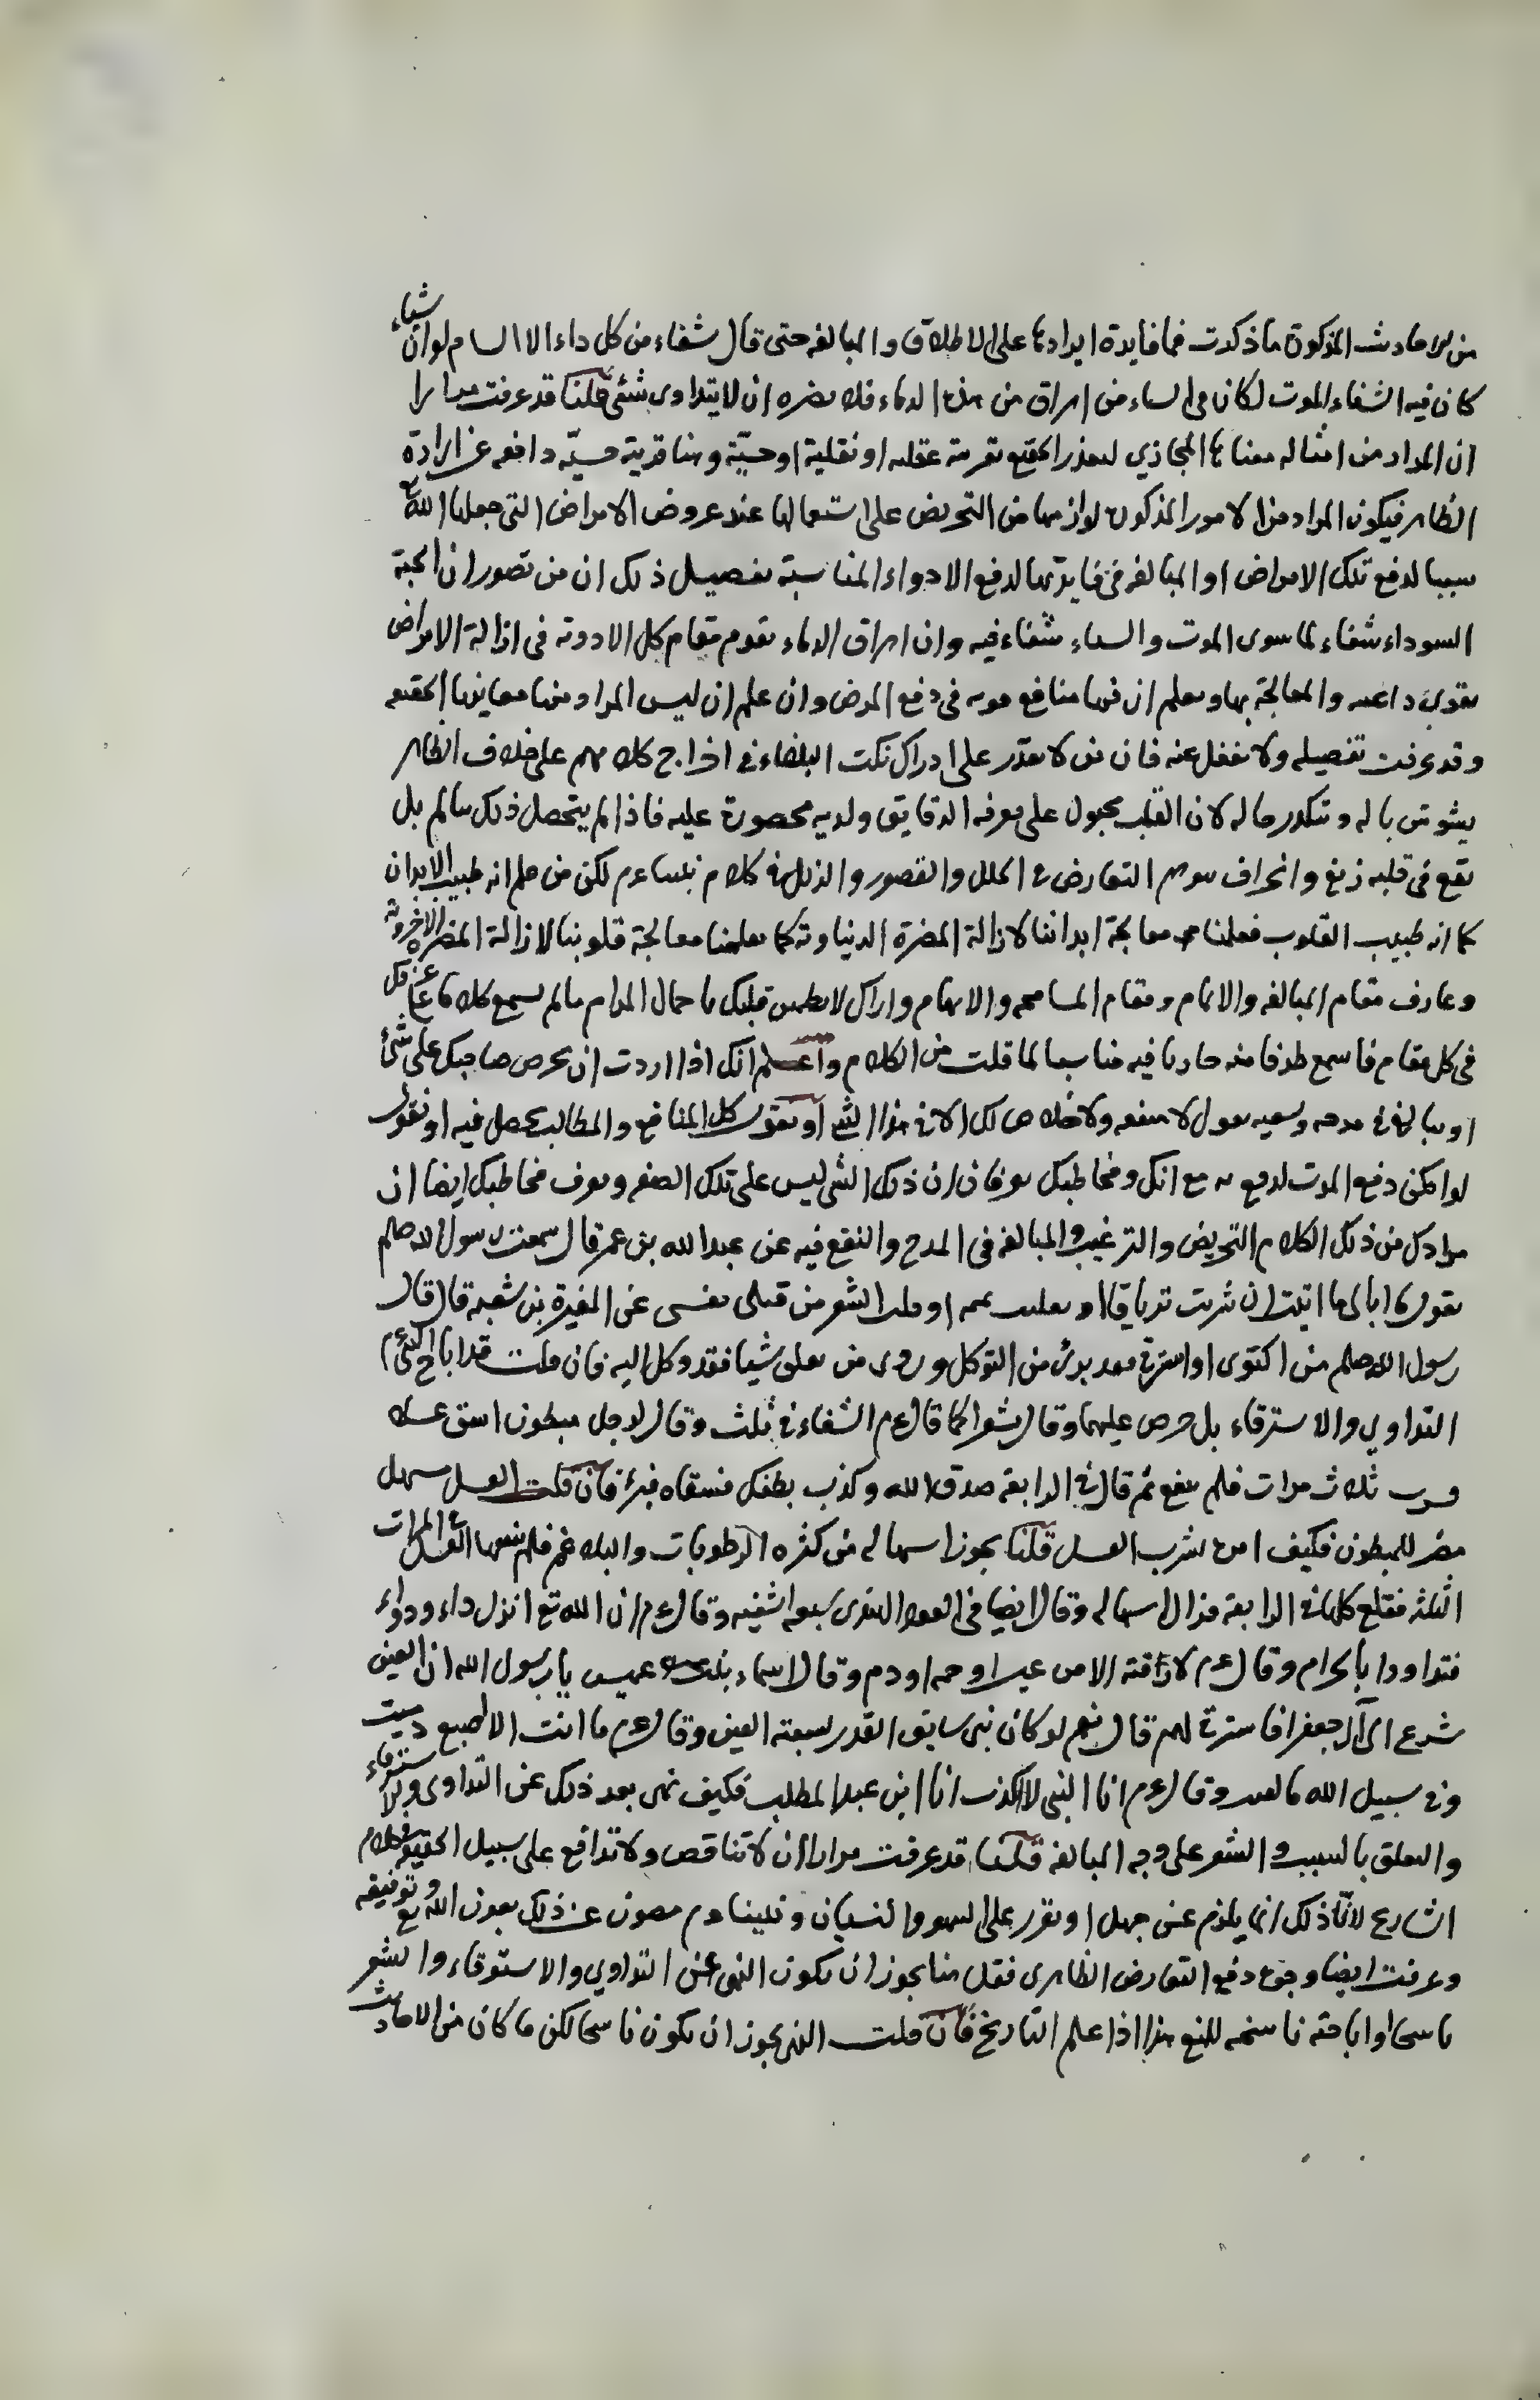 من الاحاديث المذكورة ما ذكرت فما فايدة ايرادها على الاطلاق والمبالغة حتى قال شفاء من كل داء الا السام لو ان شيئا
كان فيه الشفاء الموت لكان في السناء من اهراق من هذه الدماء فلا يضره ان لا يتداوى بشئ قلنا قد عرفت مرارا
ان المراد من امثاله معناها المجازي لتعذر الحقيقي بقرينة عقلية او نقلية او حسيّة وهنا قرينة حسيّة دافعة عن ارادة
الظاهر فيكون المراد من الامور المذكورة لوازمها من التحريض على استعمالها عند عروض الامراض التي جعلها الله تع
سببا لدفع تلك الامراض او المبالغة في فايدتها لدفع الادواء المناسبة تفصيل ذلك ان من تصور ان الحبة
السوداء شفاء لما سوى الموت والسناء شفاء فيه وان اهراق الدماء يقوم مقام كل الادوية في ازالة الامراض
يقوى داعيه والمعالجة بها ويعلم ان فيها منافع قوية في دفع المرض وان علم ان ليس المراد منها معاينها الحقيقية
وقد عرفت تفصيله ولا تغفل عنه فان من لا يقدر على ادراك نكت البلغاء في اخراج كلامهم على خلاف الظاهر
يشوش باله وتتكدر حاله لان القلب مجبول على معرفة الدقايق ولديه محصورة عليه فاذا لم يتحصل ذلك سالم بل
يقع في قلبه زيغ وانحراف بتوهم التعارض في الخلل والقصور والزلل في كلام نبينا عم لكن من علم انه طبيب الابدان
كما انه طبيب القلوب فعلمنا معالجة ابداننا لازالة المضرة الدنياوية كما يعلمنا معالجة قلوبنا لازالة المضرة الاخروية
وعارف مقام المبالغة والاتمام ومقام المسامحة والاتهام واراك لا يطمئن قلبك باحمال المرام مالم يسمع كلاما عن كل
في كل مقام فاسمع طرفا منه حاويا فيه مناسبا لما قلت من الكلام واعلم انك اذا اردت ان تحرص صاحبك على شئ
او تبالغ في مدحه وتسعيه تقول لا منفعة ولا خلاص لك الا في هذا الشئ او تقول كل المنافع والمطالب تحصل فيه او تقول
لو امكن دفع الموت لدفع به مع انك ومخاطبك تعرفان ان ذلك الشئ ليس على تلك الصفة ويعرف مخاطبك ايضا ان
مرادك من ذلك الكلام التحريض والترغيب والمبالغة في المدح والنفع فيه عن عبد الله بن عمر قال سمعت رسول الله صلعم
يقول ما ابالي ما اتيت ان شربت ترياقا او تعلقت تميمة او قلت الشعر من قبلي نفسي عن المغيرة بن شعبة قال قال
رسول الله صلعم من اكتوى او استرقى فقد برئ من التوكل وروى من تعلق شيئا فقد وكل اليه فان قلت قد اباح النبي عم
التداوي والاسترقاء بل حرص عليهما وقال شعرا كما قال عم الشفاء في ثلث وقال لاجل مبطون اسق عسلا
فشرب ثلاث مرات فلم ينفع ثم قال في الرابعة صدق الله وكذب بطنك فسقاه فبرئ فان قلت العسل مسهل
مضر للمبطون فكيف امره بشرب العسل قلنا يجوز اسهاله من كثرة الرطوبات والبلاغم فلم ينفعها العسل في المرات
الثلثة فقلع كلها في الرابعة فزال اسهاله وقال ايضا في العود الهندي سبعة اشفية وقال عم ان الله تع انزل داء ودواء
فتداووا بالحرام وقال عم لا رقية الا من عين او حمة او دم وقال اسماء بنت عميس يا رسول الله ان العين
تسرع الى آل جعفر افاسترقي لهم قال نعم لو كان شئ سابق القدر لسبقته العين وقال عم ما انت الا اصبع دميت
وفي سبيل الله ما لقيت وقال عم انا النبي لا اكذب انا ابن عبد المطلب فكيف نهى بعد ذلك عن التداوي والاسترقاء
والتعلق بالسبب والشعر على وجه المبالغة قلنا قد عرفت مرارا ان لا تناقض ولا تدافع على سبيل الحقيقة في كلام
الشارع لان ذلك انما يلزم عن جهل او تقرر على السهو والنسيان ونبينا عم مصون عن ذلك بعون الله تع وتوفيقه
وعرفت ايضا وجوه دفع التعارض الظاهرى فقل هنا يجوز ان يكون النهي عن التداوي والاسترقاء والشعر
ناسخا او اباحته ناسخه للمنع هذا اذا علم التاريخ فان قلت النهي يجوز ان يكون ناسخا لكن ما كان من الاحاديث